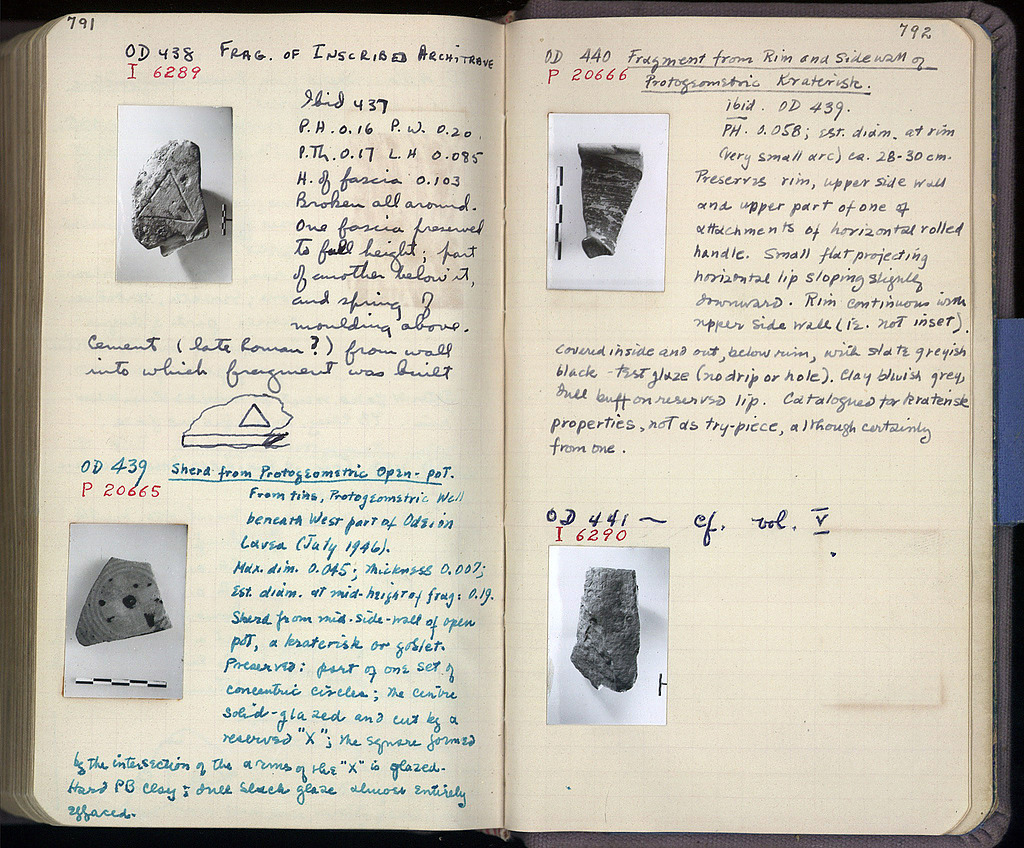 791
OD 438 FRAG. OF INSCRIBED ARCHITRAVE
I 6289
Ibid 437
P.H. 0.16 P.W. 0.20,
P.Th. 0.17 L.H 0.085
H. of fascia 0.103
Broken all around.
One fascia preserved
to full height; part
of another below it,
and spring of
moulding above.
Cement (late Roman?) from wall
into which fragment was built
OD 439 Sherd from Protogeometric Open-pot.
P 20665
From fins, Protogeometric Well
beneath West part of Odeion
Cavea (July 1946).
Max. dim. 0.045; thickness 0.007;
Est. diam. at mid-height of frag: 0.19.
Sherd from mid-side-wall of open
pot, a kraterisk or goblet.
Preserved: part of one set of
concentric circles; the centre
solid-glazed and cut by a
reserved "X"; the square formed
by the intersection of the arms of the "X" is glazed.
Hard PB clay; dull black glaze almost entirely
effaced.
792
OD 440 Fragment from Rim and Sidewall of
P 20666 Protogeometric Kraterisk.
ibid. OD 439.
PH. 0.058; est. diam. at rim
(very small arc) ca. 28-30 cm.
Preserves rim, upper side wall
and upper part of one of
attachments of horizontal rolled
handle. Small flat projecting
horizontal lip sloping slightly
downward. Rim continuous with
upper side wall (i.e. not inset).
Covered inside and out, below rim, with slate greyish
black - test glaze (no drip or hole). Clay bluish grey,
dull buff on reserved lip. Catalogued for kraterisk
properties, not as try-piece, although certainly
from one.
OD 441 — cf. vol. V
I 6290